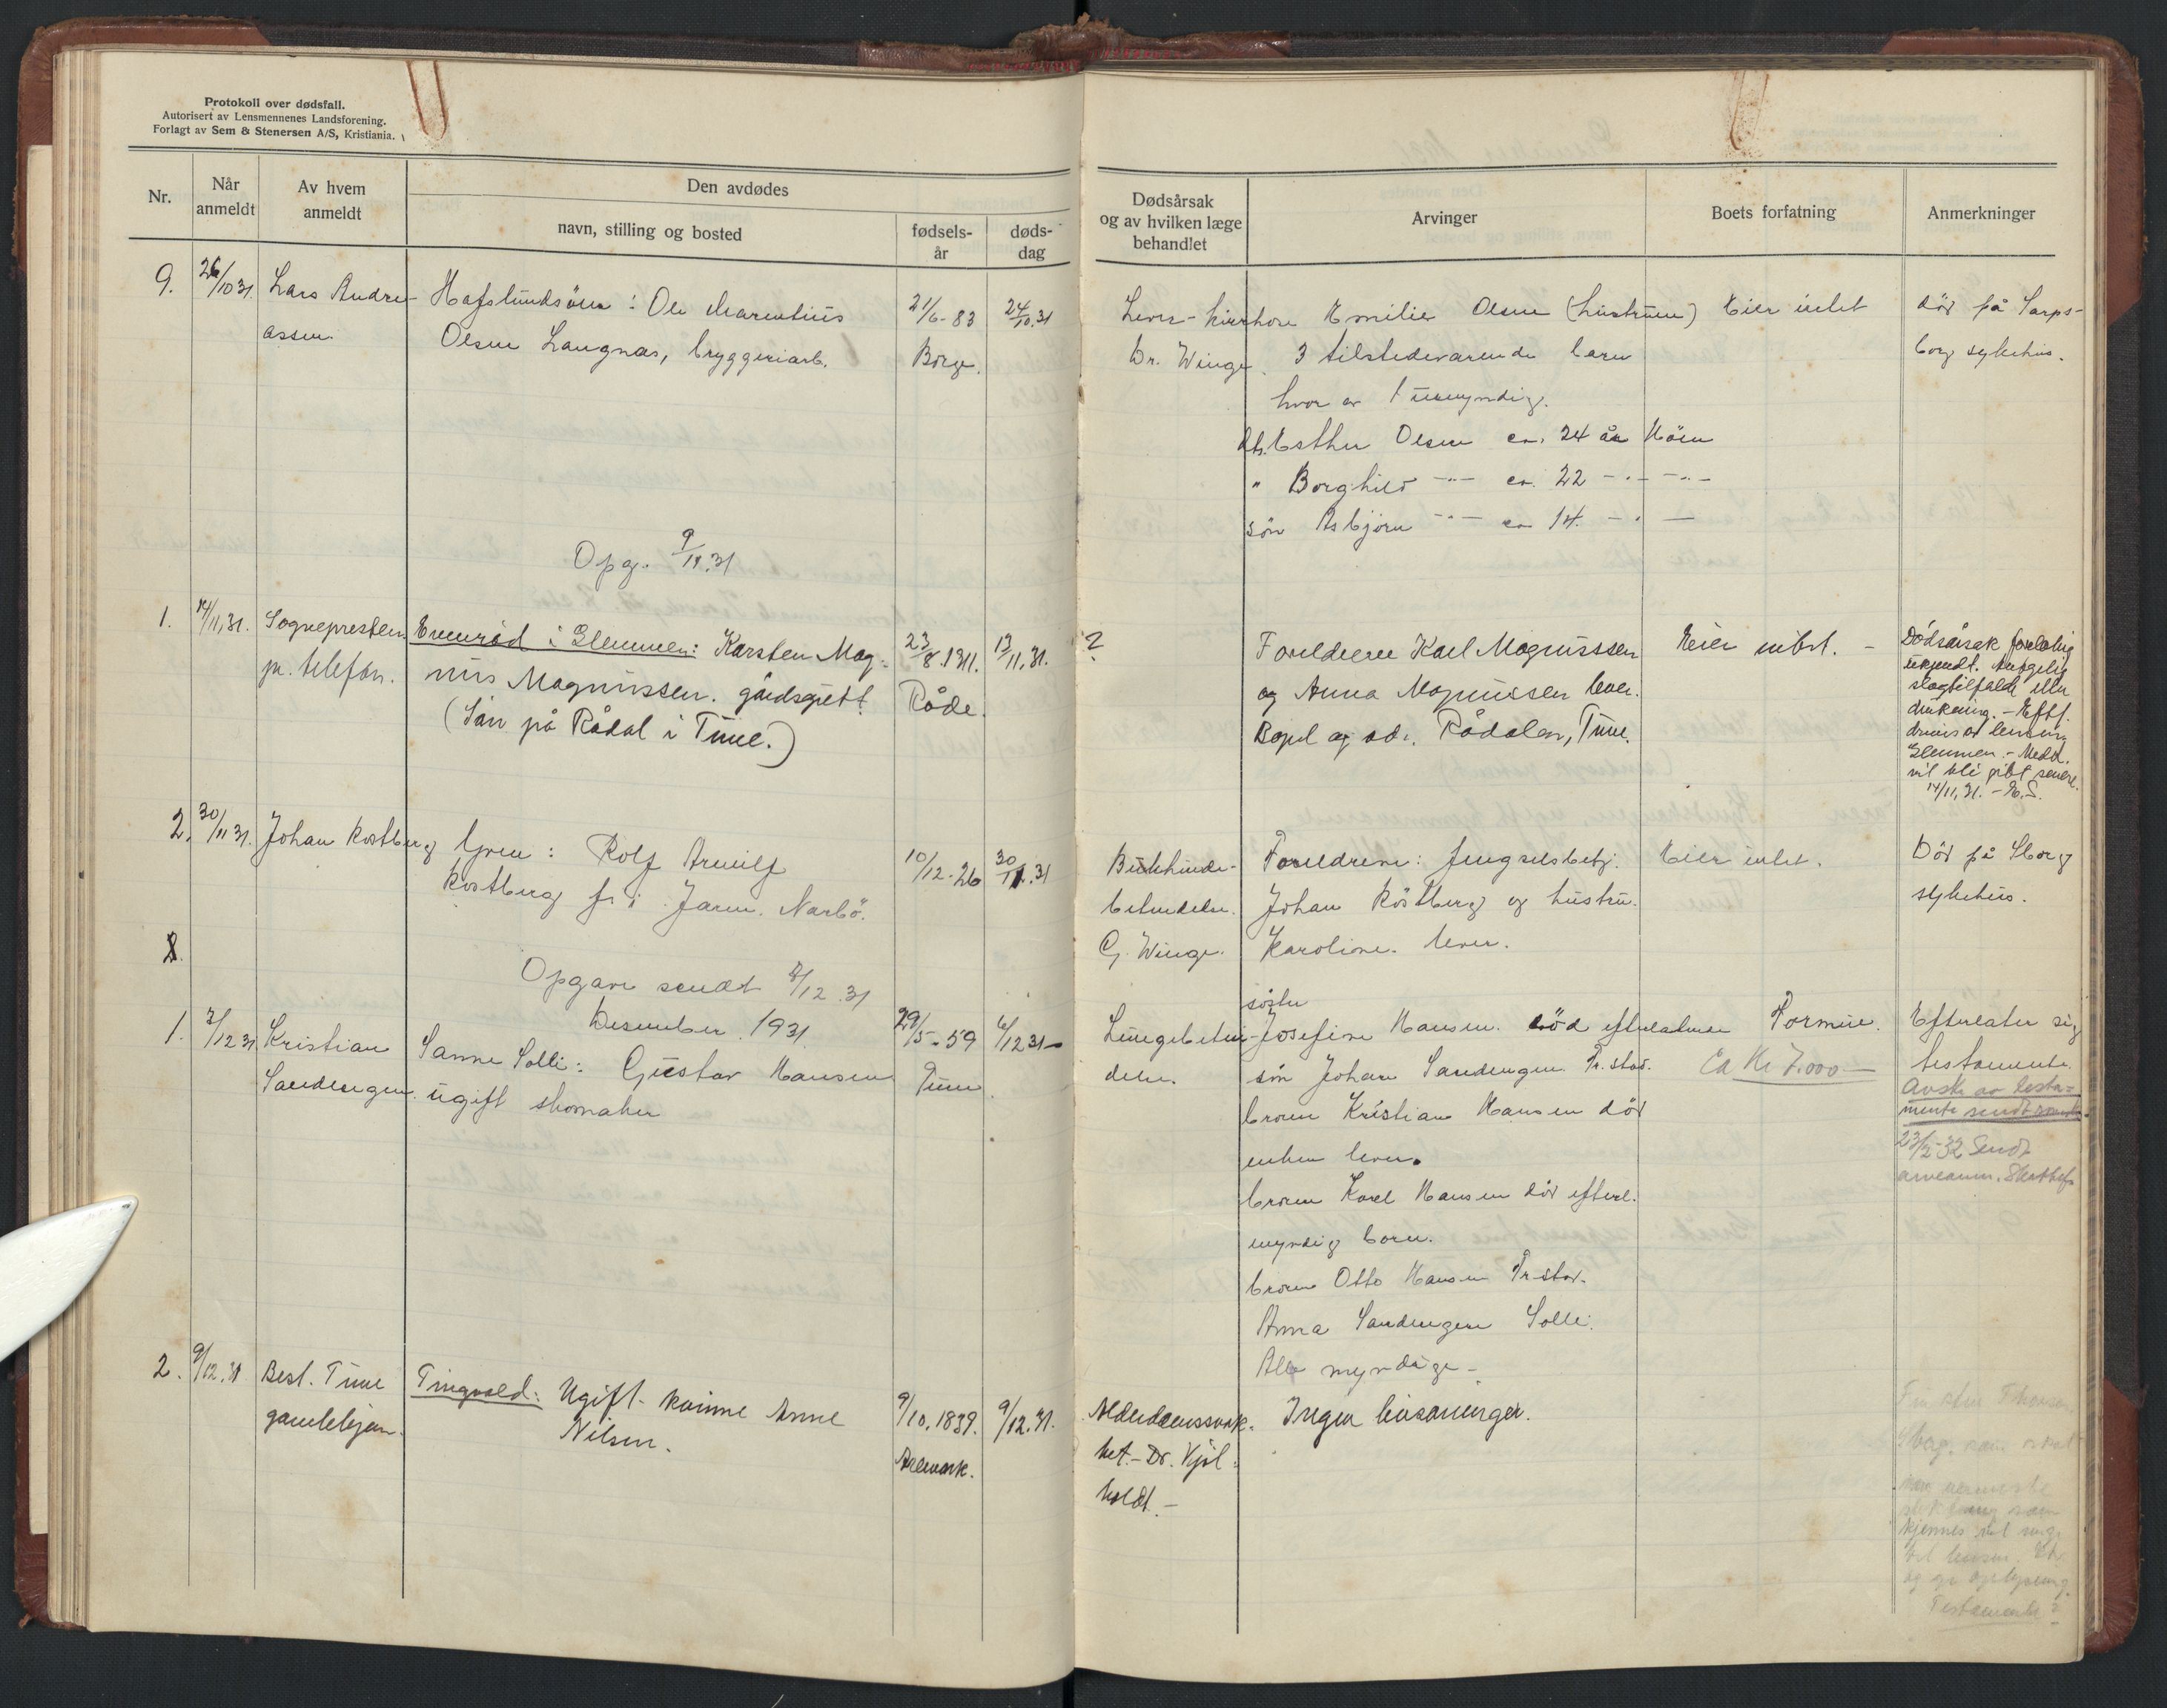 Protokoll over dødsfall.
Autorisert av Lensmennenes Landsforening.
Forlagt av Sem & Stenersen A/S, Kristiania.
Nr.
Når anmeldt
Av hvem anmeldt
Den avdødes
navn, stilling og bosted
fødsels-år
døds-dag
Dødsårsak og av hvilken læge behandlet
Arvinger
Boets forfatning
Anmerkninger
9. 26/10 31. Lars Andre-
assen.
Hafslundsöen: Ole Marentius
Olsen Langnas, bryggeriarb.
21/6-83
Borge.
24/10.31
Dr. Winge.
Emilie Olsen (hustruen)
3 tilstedevarende barn
hvor av 1 umyndig.
dt. Esther Olsen ca. 24 år
" Borghild -"- ca. 22 -"- -"-
sön Asbjørn -"- ca 14. -"-
Eier intet
död på Sarps-
borg sykehus.
Opg. 9/11.31
1. 14/11.31. Sognepresten
pr. telefon.
i Glemmen: Karsten Mag-
nus Magnussen. gårdsgutt
(Sön på Rådal i Tune.)
23/8.1911.
Råde.
13/11.31.
?
Foreldrene Karl Magnussen
og Anna Magnussen lever.
Bopel og adr. Rådalen, Tune.
Eier intet. -
Dödsårsak foreløbig
ukjendt. Antagelig
slagtilfælde eller
drukning. - Eftf.
drives av lensm.
Glemmen. - Medd.
vil bli gibt senere.
14/11.31. - E.S.
2. 30/11 31. Johan Kostberg
Gren: Rolf Arnulf
Kostberg
10/12-26
30/11.31
Bukhinde-
betendelse.
G. Winge.
Foreldrene: fengselsbetj.
JohanKöstberg og hustru
Karoline. lever.
Eier intet.
Död på Sborg
sykehus.
Opgave sendt 2/12.31
Desember 1931.
1. 7/12 31 Kristian
Sandengen.
Sanne Solli: Gustav Hansen
ugift skomaker
29/5-59
Tune
6/12 31
Lungebeten-
delse.
söster
Josefine Hansen. död efterlatene
sön Johan Sandengen Fr.stad.
broren Kristian Hansen död
enken lever.
broren Karl Hansen död efterl.
myndig barn.
broren Otto Hansen Fr.stad.
Anna Sandengen Solli.
Alle myndige -
Formue.
Ca Kr 7.000 -
Efterlater sig
testamente.
Avskr av testa-
mente sendt
23/2-32 Sendt
2. 9/12.31 Best. Tune
gamlehjem.
Tingvold: Ugift kvinne Anne
Nilsen.
9/10.1839.
Aremark.
9/12.31.
Alderdomssvak-
het. - Dr. Kjöl-
holdt. -
Ingen livsarvinger.
som
kjennes vil
Testamente?